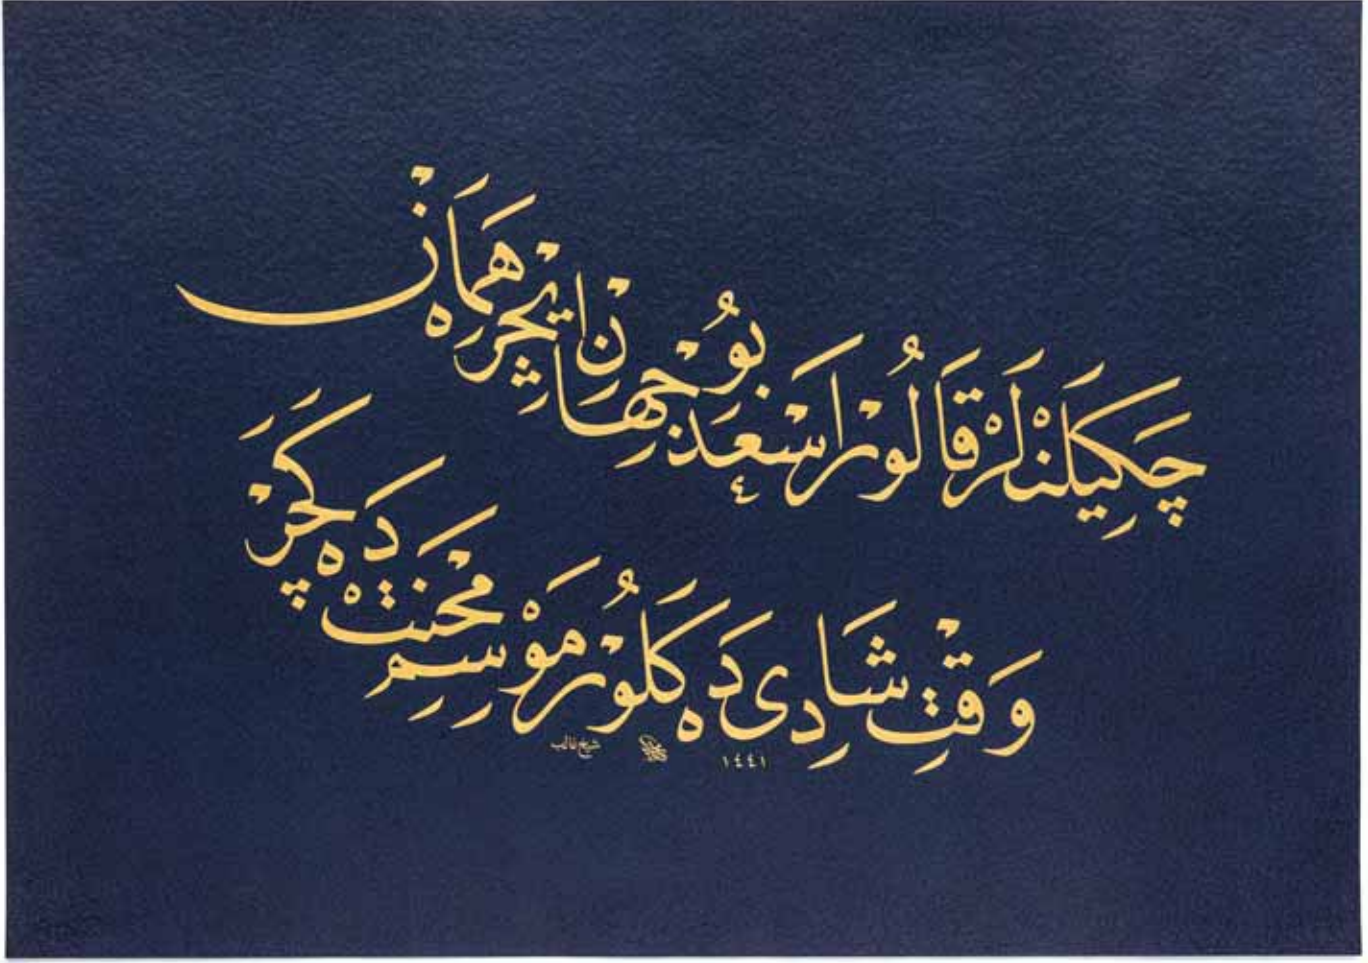 چَكِيلَنْلَرْ قَالُورْ اَسْعَدْ بُو جِهَانْ اِيچْرَه هَمَانْ
وَقْتِ شَادِى دَه كَلُورْ مَوْسِمِ مِحْنَتْ دَه كَچَرْ
شيخ غالب
١٤٤١